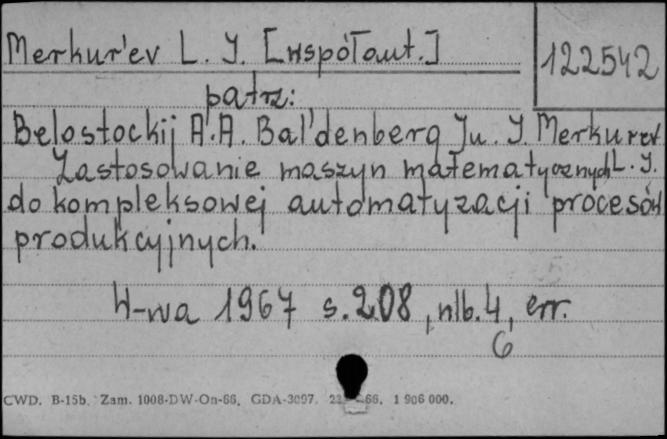 Merkur'ev L. J. [współaut.]
122542
patrz:
Belostockij A.A. Bal'denberg Ju. J. Merkurev
Zastosowanie maszyn matematycznych L. J.
do kompleksowej automatyzacji procesów
produkcyjnych.
W-wa 1967 s. 208, nlb. 4, err.
6
CWD. B-15b. Zam. 1008-DW-On-66. GDA-3097. 66. 1 906 000.